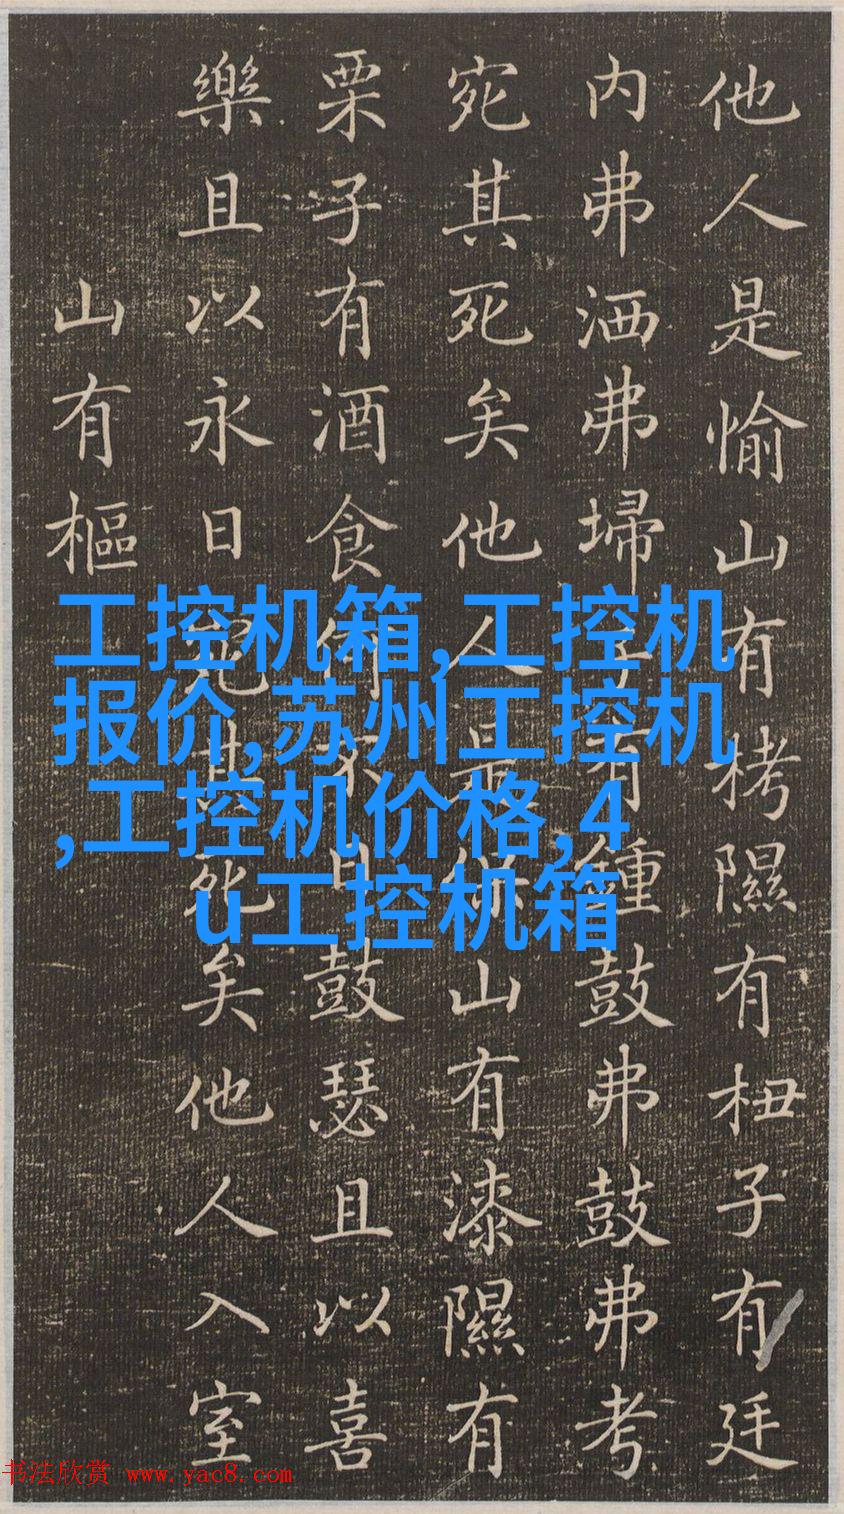 他人是愉山有栲隰有杻子有廷
内弗洒弗埽子有鍾鼓弗鼓弗考
宛其死矣他人是保山有漆隰有
栗子有酒食何不日鼓瑟且以喜
樂且以永日宛其死矣他人入室
山有樞
工控机箱,工控机
报价,苏州工控机
,工控机价格,4
u工控机箱
书法欣赏 www.yac8.com